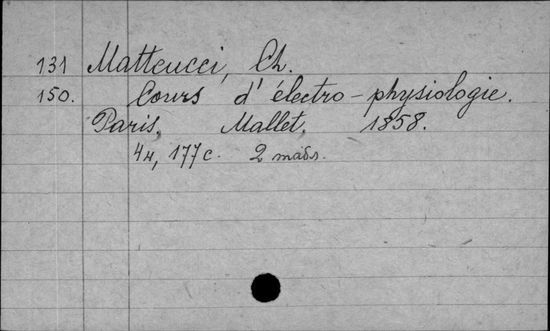 131 Matteucci, Ch.
150. Cours d'électro-physiologie.
Paris, Mallet, 1858.
4н, 177с. 2 табл.